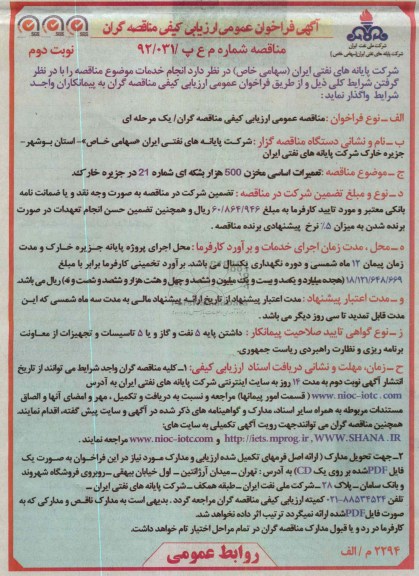 آگهی فراخوان عمومی ارزیابی کیفی مناقصه گران
مناقصه شماره م ع پ /۹۲/۰۳۱
نوبت دوم
شرکت ملی نفت ایران
شرکت پایانه های نفتی ایران (سهامی خاص)
شرکت پایانه های نفتی ایران (سهامی خاص) در نظر دارد انجام خدمات موضوع مناقصه را با در نظر
گرفتن شرایط کلی ذیل و از طریق فراخوان عمومی ارزیابی کیفی مناقصه گران به پیمانکاران واجد
شرایط واگذار نماید:
الف – نوع فراخوان: مناقصه عمومی (ارزیابی کیفی مناقصه گران) / یک مرحله ای
ب – نام و نشانی دستگاه مناقصه گزار: شرکت پایانه های نفتی ایران «سهامی خاص» – استان بوشهر –
جزیره خارک شرکت پایانه های نفتی ایران
ج – موضوع مناقصه: تعمیرات اساسی مخزن 500 هزار بشکه ای شماره 21 در جزیره خارک
د – نوع و مبلغ تضمین شرکت در مناقصه: تضمین شرکت در مناقصه به صورت وجه نقد و یا ضمانت نامه
بانکی معتبر و مورد تایید کارفرما به مبلغ ۶۰/۸۶۴/۹۴۶ ریال و همچنین تضمین حسن انجام تعهدات در صورت
برنده شدن به میزان ۵٪ نرخ پیشنهادی برنده مناقصه.
ه – محل، مدت زمان اجرای خدمات و برآورد کارفرما: محل اجرای پروژه پایانه جزیره خارک و مدت
زمان پیمان ۱۲ ماه شمسی و دوره نگهداری یکسال می باشد. برآورد تخمینی کارفرما برابر با مبلغ
۱۸/۱۲۱/۶۴۸/۶۶۹ (هجده میلیارد و یکصد و بیست و یک میلیون و ششصد و چهل و هشت هزار و ششصد و شصت و نه) ریال می باشد.
و – مدت اعتبار پیشنهاد: مدت اعتبار پیشنهاد از تاریخ ارائه پیشنهاد مالی به مدت سه ماه شمسی که این
مدت قابل تمدید تا سی روز دیگر می باشد.
ز – نوع گواهی تایید صلاحیت پیمانکار: داشتن پایه ۵ نفت و گاز و یا ۵ تاسیسات و تجهیزات از معاونت
برنامه ریزی و نظارت راهبردی ریاست جمهوری.
ح – زمان، مهلت و نشانی دریافت اسناد ارزیابی کیفی: ۱ – کلیه مناقصه گران واجد شرایط می توانند از تاریخ
انتشار آگهی نوبت دوم به مدت ۱۴ روز به سایت اینترنتی شرکت پایانه های نفتی ایران به آدرس
www.nioc-iotc.com (قسمت امور پیمانها) مراجعه و نسبت به دریافت و تکمیل، مهر و امضای آنها و الصاق
مستندات مربوطه به همراه سایر اسناد، مدارک و گواهینامه های ذکر شده در آگهی و سایت پیش گفته، اقدام نمایند.
همچنین مناقصه گران می توانند جهت رویت آگهی تکمیلی به سایت های:
http://iets.mprog.ir , WWW.SHANA.IR و www.nioc-iotc.com مراجعه نمایند.
۲– جهت تحویل مدارک (ارائه اصل فرمهای تکمیل شده ارزیابی و مدارک مورد نیاز در این فراخوان به صورت یک
فایل PDF شده بر روی یک CD) به آدرس: تهران – میدان آرژانتین – اول خیابان بیهقی – روبروی فروشگاه شهروند
و بانک سامان – پلاک ۲۸ – شرکت ملی نفت ایران – طبقه همکف – شرکت پایانه های نفتی ایران –
تلفن ۸۸۵۳۴۵۲۴-۰۲۱ کمیته ارزیابی کیفی مناقصه گران مراجعه گردد. بدیهی است به مدارک ناقص و مدارکی که به
صورت فایل PDF شده ارائه نمیگردد ترتیب اثر داده نخواهد شد.
کارفرما در رد و یا قبول مدارک مناقصه گران در تمام مراحل اختیار تام خواهد داشت.
۳۲۹۴ م / الف
روابط عمومی